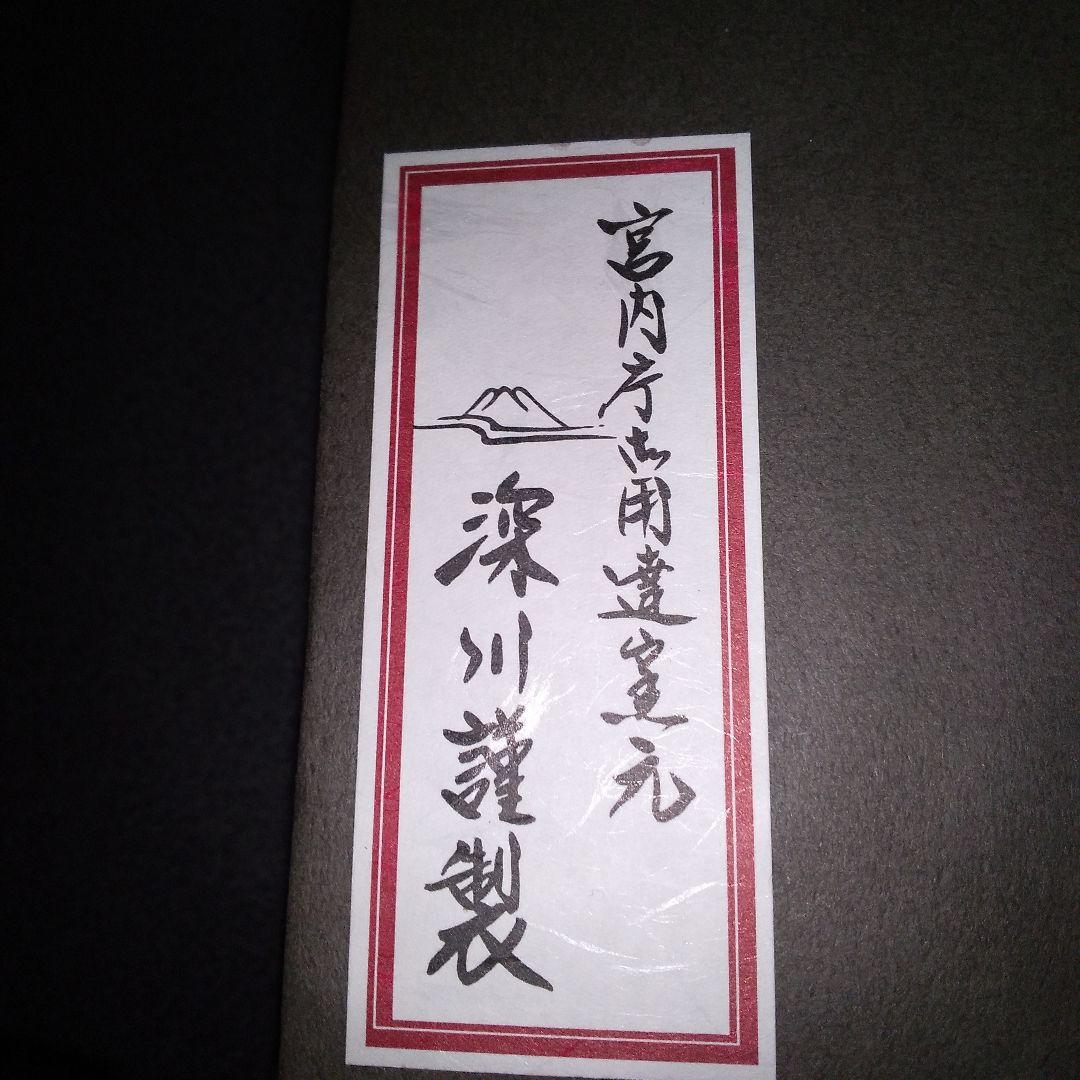 宮内庁御用達窯元
深川謹製